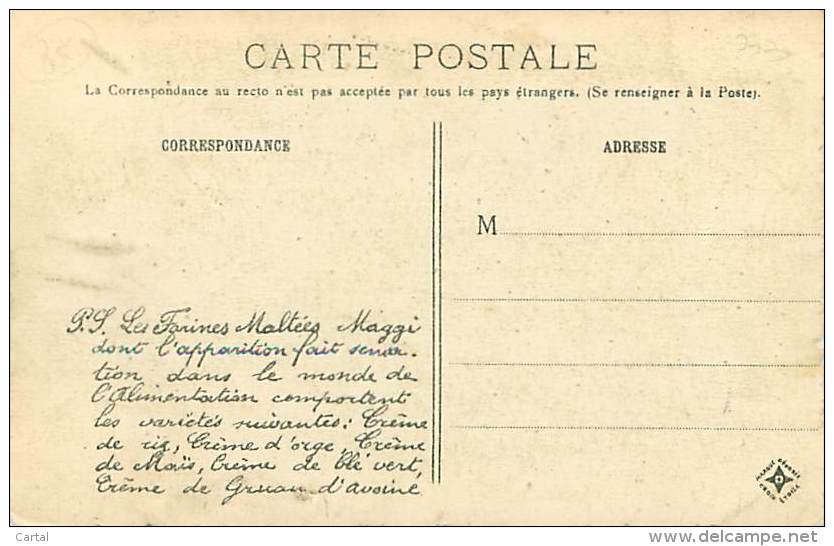 CARTE POSTALE
La Correspondance au recto n'est pas acceptée par tous les pays étrangers. (Se renseigner à la Poste).
CORRESPONDANCE
ADRESSE
M
P.S. Les Farines Maltées Maggi
dont l'apparition fait sensa-
tion dans le monde de
l'Alimentation comportent
les variétés suivantes: Crème
de riz, Crème d'orge, Crème
de Maïs, Crème de Blé vert,
Crème de Gruau d'avoine
MARQUE DÉPOSÉE
CROIX ÉTOILE
Cartal
www.delcampe.net